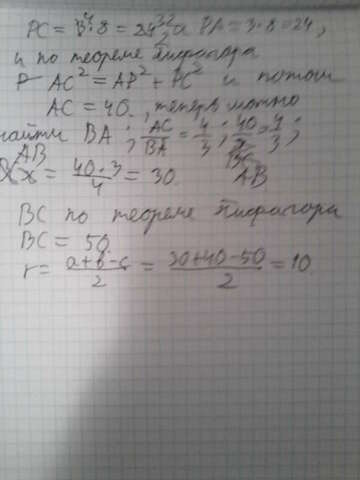 PC = 4·8 = 32, а PA = 3·8 = 24,
и по теореме Пифагора
AC² = AP² + PC² и потом
AC = 40, теперь можно
найти BA; AC/BA = 4/3; 40/x = 4/3;
AB
x = 40·3/4 = 30. AB
BC по теореме Пифагора
BC = 50
r = a+b-c/2 = 30+40-50/2 = 10